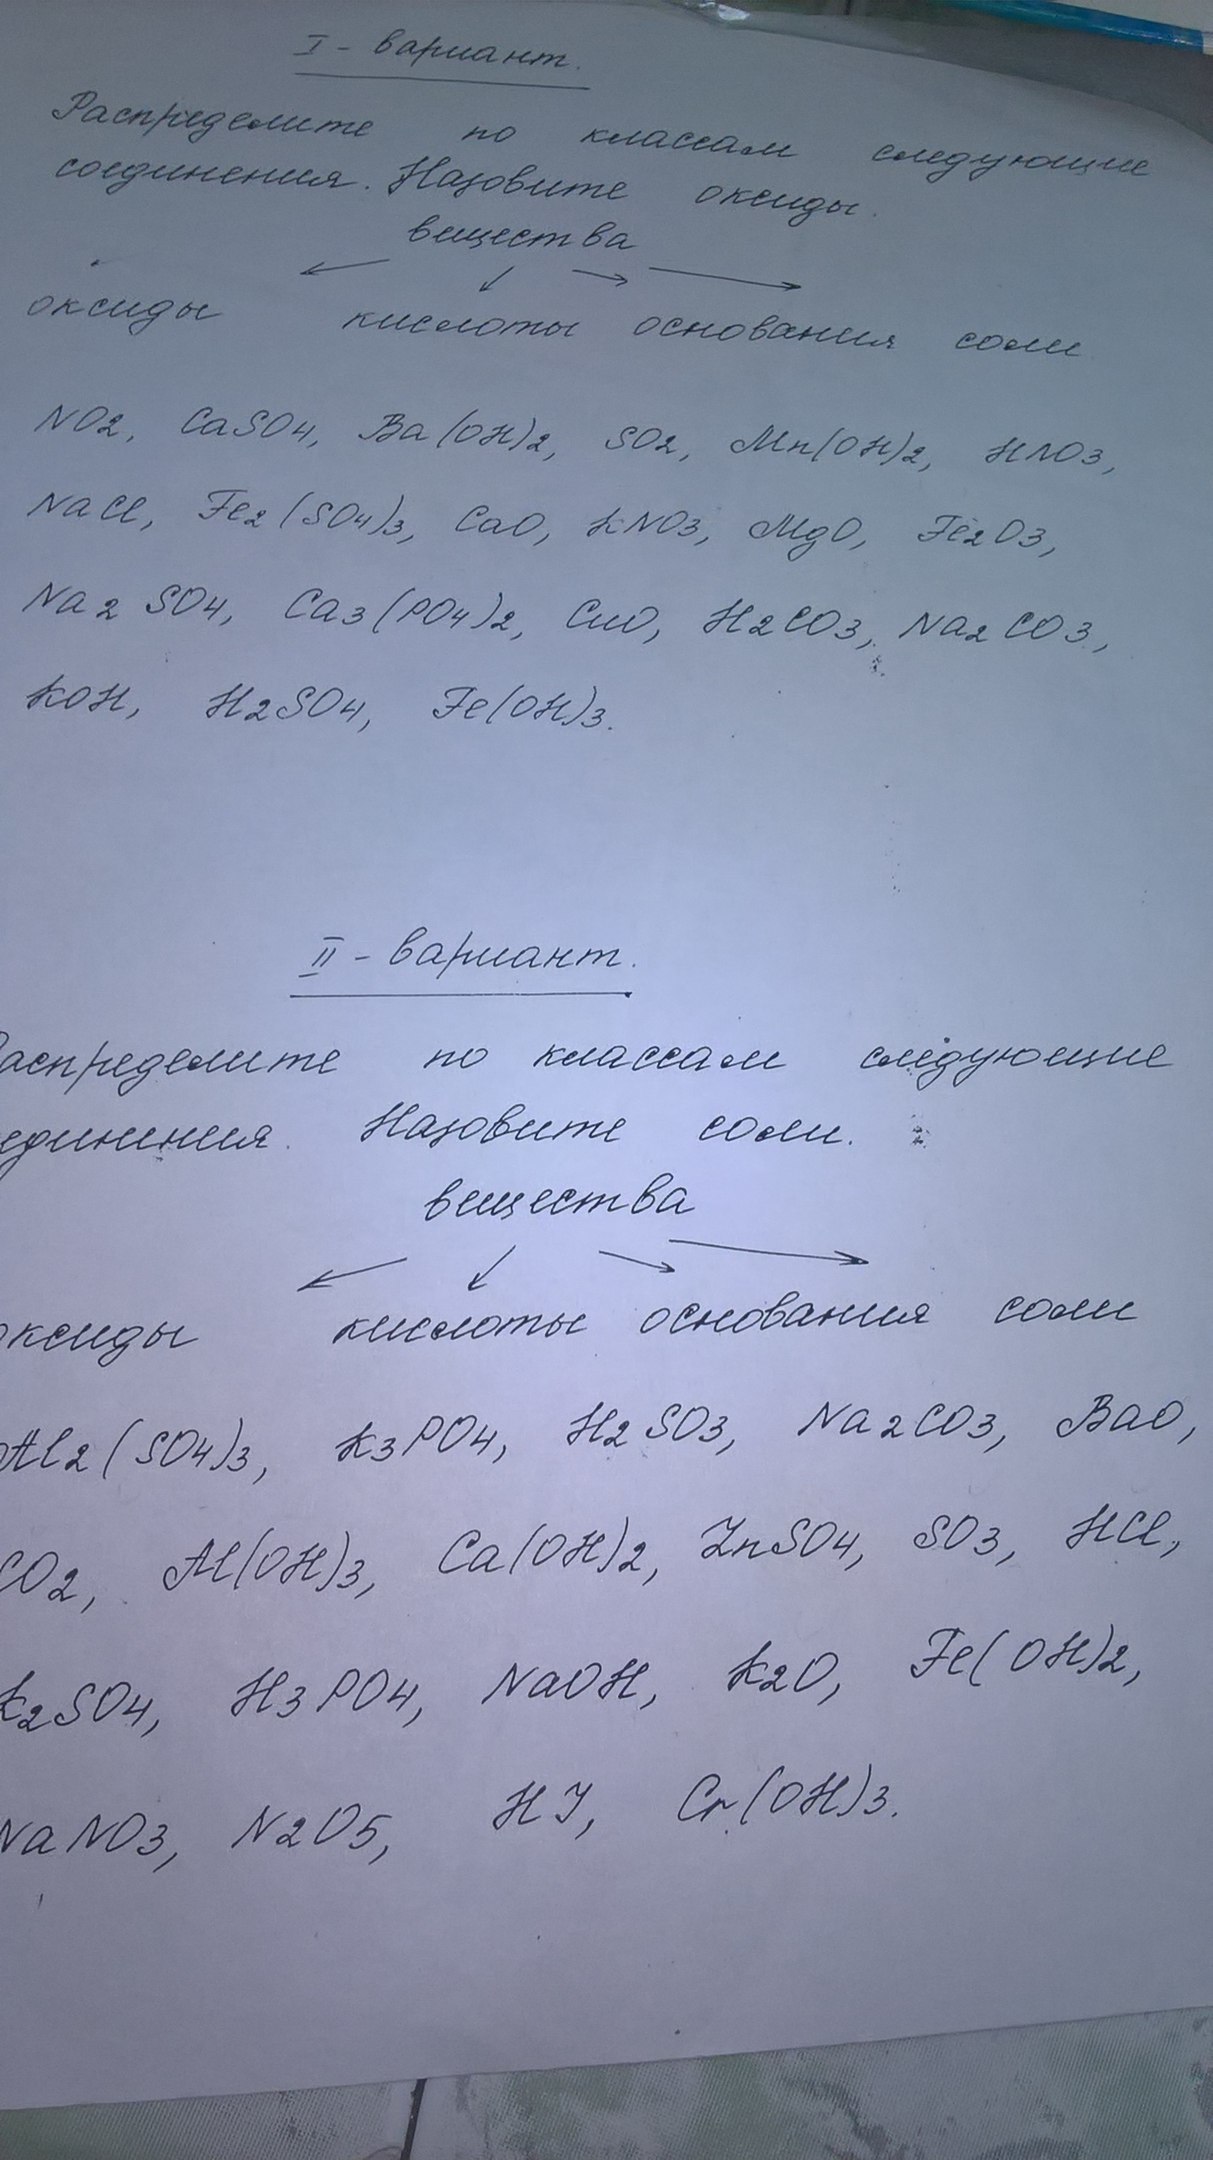 I - вариант.
Распределите по классам следующие
соединения. Назовите оксиды.
вещества
оксиды кислоты основания соли
NO2, CaSO4, Ba(OH)2, SO2, Mn(OH)2, HNO3,
NaCl, Fe2(SO4)3, CaO, KNO3, MgO, Fe2O3,
Na2SO4, Ca3(PO4)2, CuO, H2CO3, Na2CO3,
KOH, H2SO4, Fe(OH)3.
II - вариант.
Распределите по классам следующие
единения. Назовите соли.
вещества
оксиды кислоты основания соли
Al2(SO4)3, K3PO4, H2SO3, Na2CO3, BaO,
CO2, Al(OH)3, Ca(OH)2, ZnSO4, SO3, HCl,
K2SO4, H3PO4, NaOH, K2O, Fe(OH)2,
NaNO3, N2O5, HJ, Cr(OH)3.